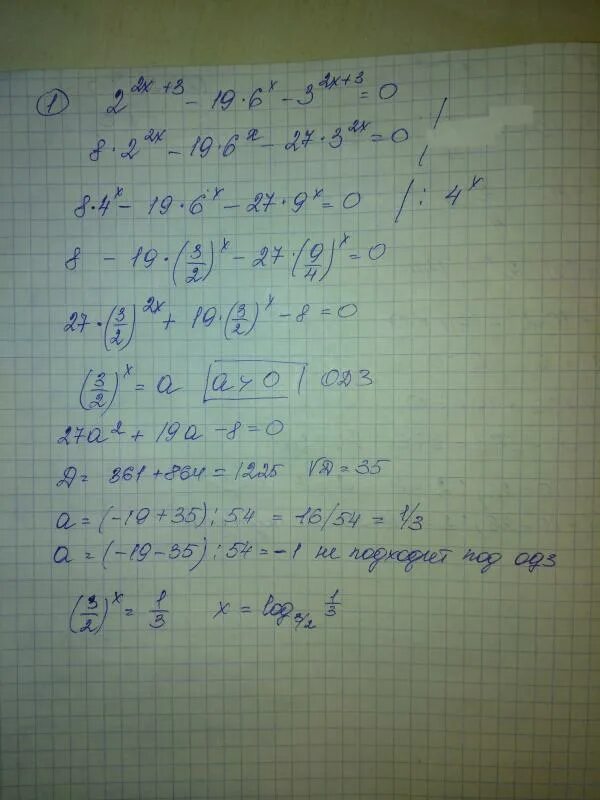 ① 2^{2x+3} - 19·6^x - 3^{2x+3} = 0
8·2^{2x} - 19·6^x - 27·3^{2x} = 0 /
8·4^x - 19·6^x - 27·9^x = 0 /: 4^x
8 - 19·(3/2)^x - 27·(9/4)^x = 0
27·(3/2)^{2x} + 19·(3/2)^x - 8 = 0
(3/2)^x = a a > 0 ОДЗ
27a² + 19a - 8 = 0
Д = 361 + 864 = 1225 √Д = 35
a = (-19+35):54 = 16/54 = 1/3
a = (-19-35):54 = -1 не подходит под одз
(3/2)^x = 1/3 x = log_{3/2} 1/3